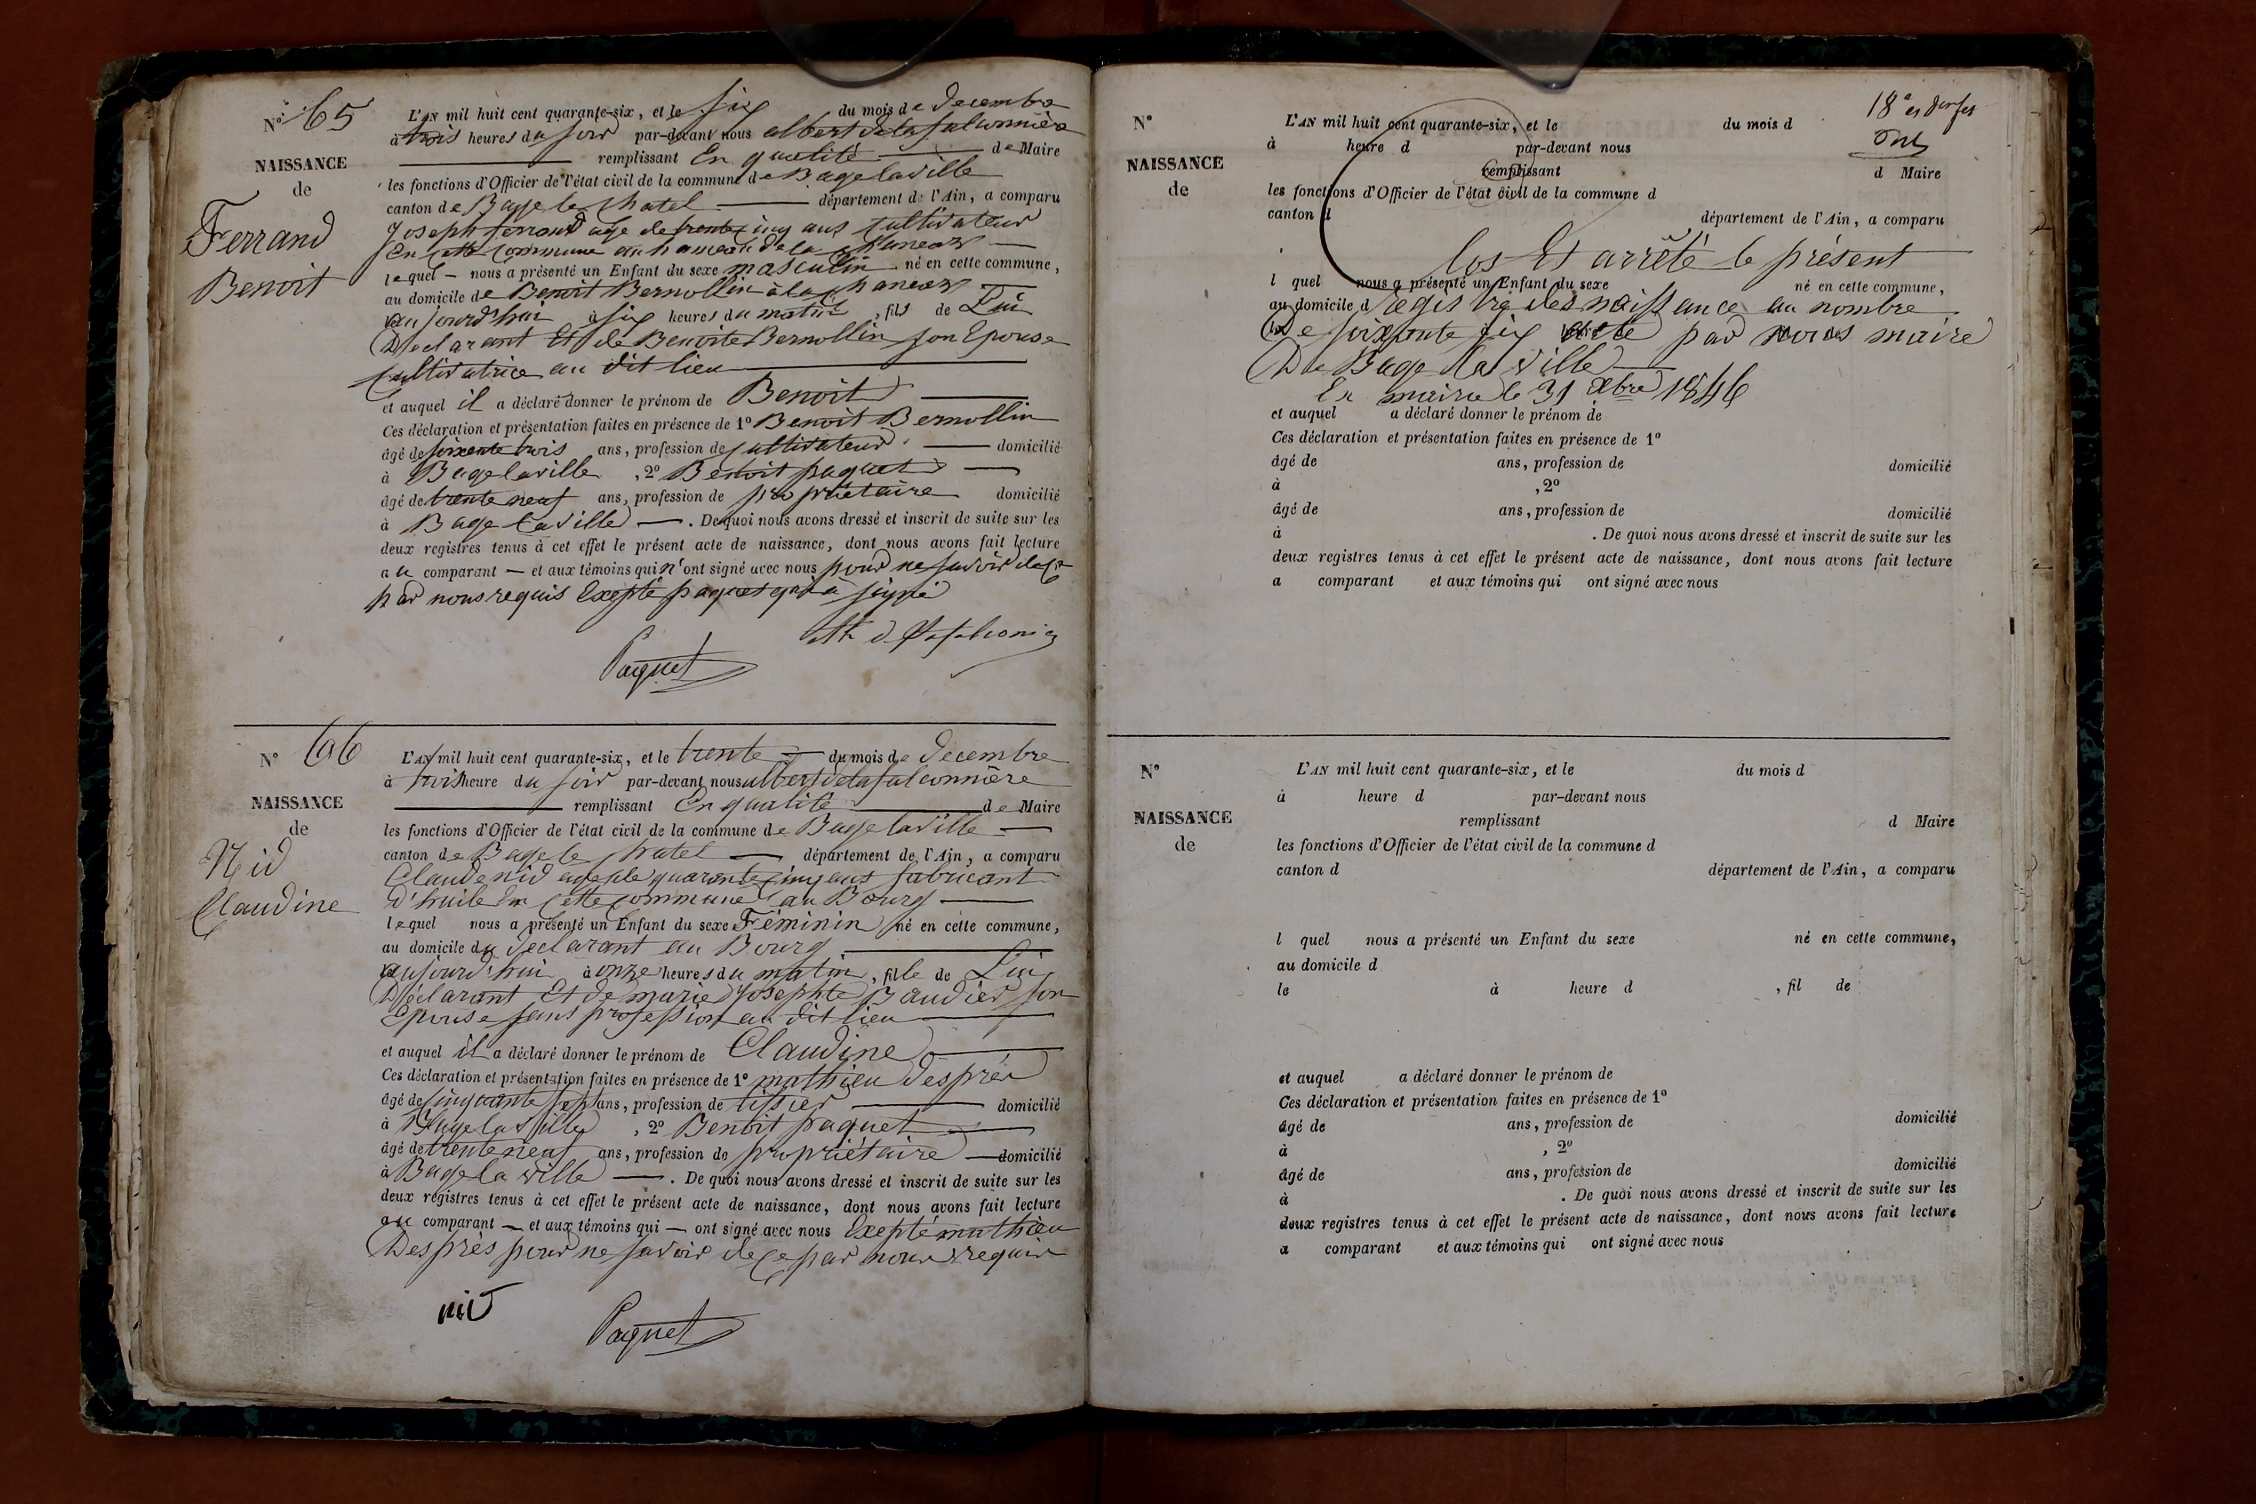 N° 65
NAISSANCE
de
Ferrand
Benoit
L'AN mil huit cent quarante-six, et le six du mois de decembre
à trois heures du soir par-devant nous albert delafalconnière
remplissant En qualité de Maire
les fonctions d'Officier de l'état civil de la commune de Bagelaville
canton de Bage le chatel département de l'Ain, a comparu
Joseph ferrand age de trente cinq ans Cultivateur
En cette Commune au hameau de la
lequel nous a présenté un Enfant du sexe masculin né en cette commune,
au domicile de Benoit Bernollin à la
aujourd'hui à six heures du matin, fils de Lui
Déclarant Et de Benoite Bernollin son Epouse
Cultivatrice au dit lieu
et auquel il a déclaré donner le prénom de Benoit
Ces déclaration et présentation faites en présence de 1° Benoit Bernollin
âgé de soixente trois ans, profession de Cultivateur domicilié
à Bagelaville, 2° Benoit paquet
âgé de trente neuf ans, profession de propriétaire domicilié
à Bage la ville. De quoi nous avons dressé et inscrit de suite sur les
deux registres tenus à cet effet le présent acte de naissance, dont nous avons fait lecture
au comparant et aux témoins qui n'ont signé avec nous pour ne savoir de ce
par nous requis Exepté paquet qui à signé
Paquet
N° 66
NAISSANCE
de
Nid
Claudine
L'AN mil huit cent quarante-six, et le trente du mois de decembre
à trois heure du soir par-devant nous albert delafalconnière
remplissant En qualité de Maire
les fonctions d'Officier de l'état civil de la commune de Bagelaville
canton de Bage le chatel département de l'Ain, a comparu
Claude nid age de quarante cinq ans fabricant
d'huile En cette commune au Bourg
lequel nous a présenté un Enfant du sexe Féminin né en cette commune,
au domicile du declarant au Bourg
aujourd'hui à onze heures du matin, fille de Lui
Déclarant Et de marie Josephte Baudier son
Epouse sans profession au dit lieu
et auquel il a déclaré donner le prénom de Claudine
Ces déclaration et présentation faites en présence de 1° mathieu desprès
âgé de cinquante sept ans, profession de tissier domicilié
à Bage la ville, 2° Benoit paquet
âgé de trente neuf ans, profession de propriétaire domicilié
à Bage la ville. De quoi nous avons dressé et inscrit de suite sur les
deux registres tenus à cet effet le présent acte de naissance, dont nous avons fait lecture
au comparant et aux témoins qui ont signé avec nous Exepté mathieu
Desprès pour ne savoir de ce par nous requis
nid
Paquet
N°
NAISSANCE
de
L'AN mil huit cent quarante-six, et le du mois d
à heure d par-devant nous
remplissant d Maire
les fonctions d'Officier de l'état civil de la commune d
canton d département de l'Ain, a comparu
Clos Et arrêté le présent
l quel nous a présenté un Enfant du sexe né en cette commune,
au domicile d registre des naissance au nombre
De soixante six acte par nous maire
De Bage la ville
En mairie le 31 xbre 1846
et auquel a déclaré donner le prénom de
Ces déclaration et présentation faites en présence de 1°
âgé de ans, profession de domicilié
à , 2°
âgé de ans, profession de domicilié
à . De quoi nous avons dressé et inscrit de suite sur les
deux registres tenus à cet effet le présent acte de naissance, dont nous avons fait lecture
a comparant et aux témoins qui ont signé avec nous
N°
NAISSANCE
de
L'AN mil huit cent quarante-six, et le du mois d
à heure d par-devant nous
remplissant d Maire
les fonctions d'Officier de l'état civil de la commune d
canton d département de l'Ain, a comparu
l quel nous a présenté un Enfant du sexe né en cette commune,
au domicile d
le à heure d , fil de
et auquel a déclaré donner le prénom de
Ces déclaration et présentation faites en présence de 1°
âgé de ans, profession de domicilié
à , 2°
âgé de ans, profession de domicilié
à . De quoi nous avons dressé et inscrit de suite sur les
deux registres tenus à cet effet le présent acte de naissance, dont nous avons fait lecture
a comparant et aux témoins qui ont signé avec nous